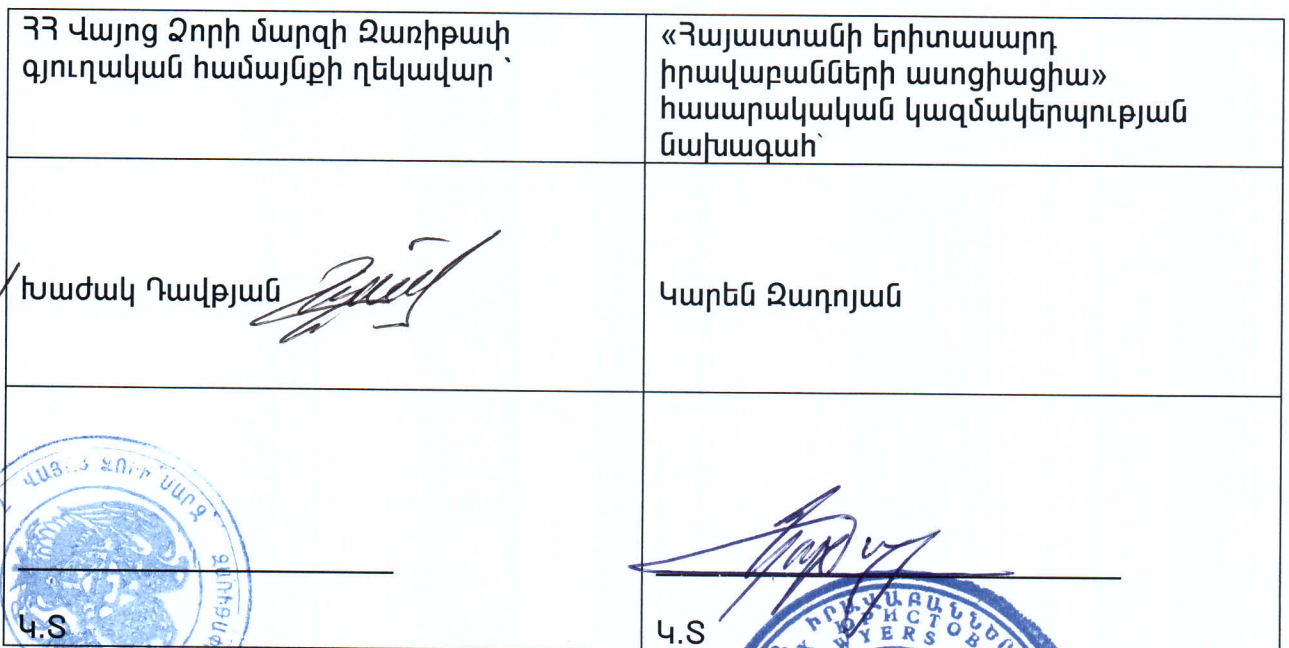 ՀՀ Վայոց Ձորի մարզի Զառիթափ
գյուղական համայնքի ղեկավար ՝
«Հայաստանի երիտասարդ
իրավաբանների ասոցիացիա»
հասարակական կազմակերպության
նախագահ՝
Խաժակ Դավթյան
Կարեն Զադոյան
ՁՈՐԻ ՄԱՐԶ
Կ.Տ
Կ.Տ